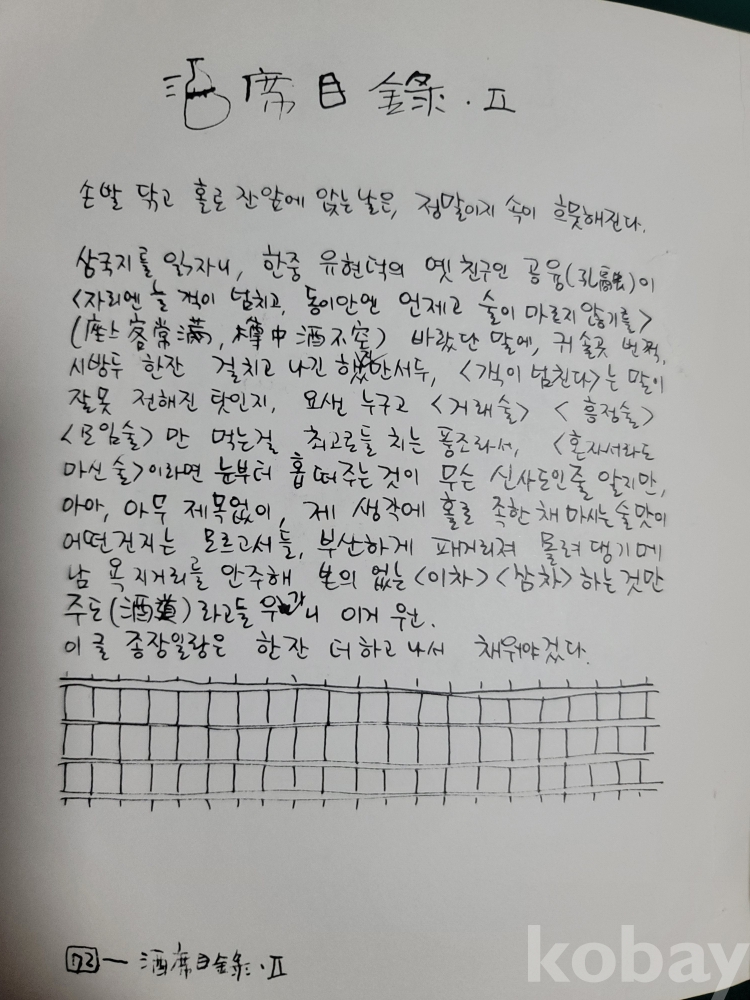 酒席目錄·Ⅱ
손발 닦고 홀로 잔앞에 앉는날은, 정말이지 속이 흐뭇해진다.
삼국지를 읽자니, 한중 유현덕의 옛 친구인 공융(孔融)이
<자리엔 늘 객이 넘치고, 동이안엔 언제고 술이 마르지 않기를>
(座上客常滿, 樽中酒不空) 바랐단 말에, 귀 솔곳 번쩍,
시방두 한잔 걸치고 나긴 했지만서두, <객이 넘친다>는 말이
잘못 전해진 탓인지, 요샌 누구고 <거래술> <흥정술>
<모임술>만 먹는걸 최고로들 치는 풍조라서, <혼자서라도
마신 술>이라면 눈부터 홉떠주는것이 무슨 신사도인줄 알지만,
아아, 아무 제목없이, 제 생각에 홀로 족한채 마시는 술맛이
어떤건지는 모르고서들, 부산하게 패거리져 몰려댕기메
남 욕지거리를 안주해 본의 없는 <이차> <삼차> 하는것만
주도(酒道)라고들 우기니 이거 원.
이 글 종장일랑은 한잔 더하고 나서 채워야겠다.
72 — 酒席目錄·Ⅱ
kobay